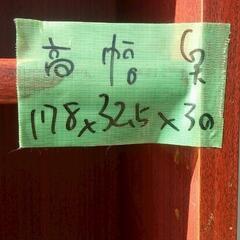 高 幅 奥
178×32.5×30